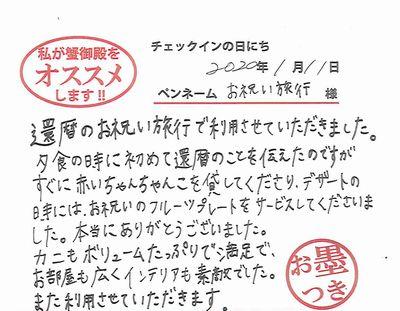 私が蟹御殿を
オススメ
します!!
チェックインの日にち
2020年 1月 11日
ペンネーム お祝い旅行 様
還暦のお祝い旅行で利用させていただきました。
夕食の時に初めて還暦のことを伝えたのですが
すぐに赤いちゃんちゃんこを貸してくださり、デザートの
時には、お祝いのフルーツプレートをサービスしてくださいま
した。本当にありがとうございました。
カニもボリュームたっぷりで満足で、
お部屋も広くインテリアも素敵でした。
また利用させていただきます。
お墨
つき